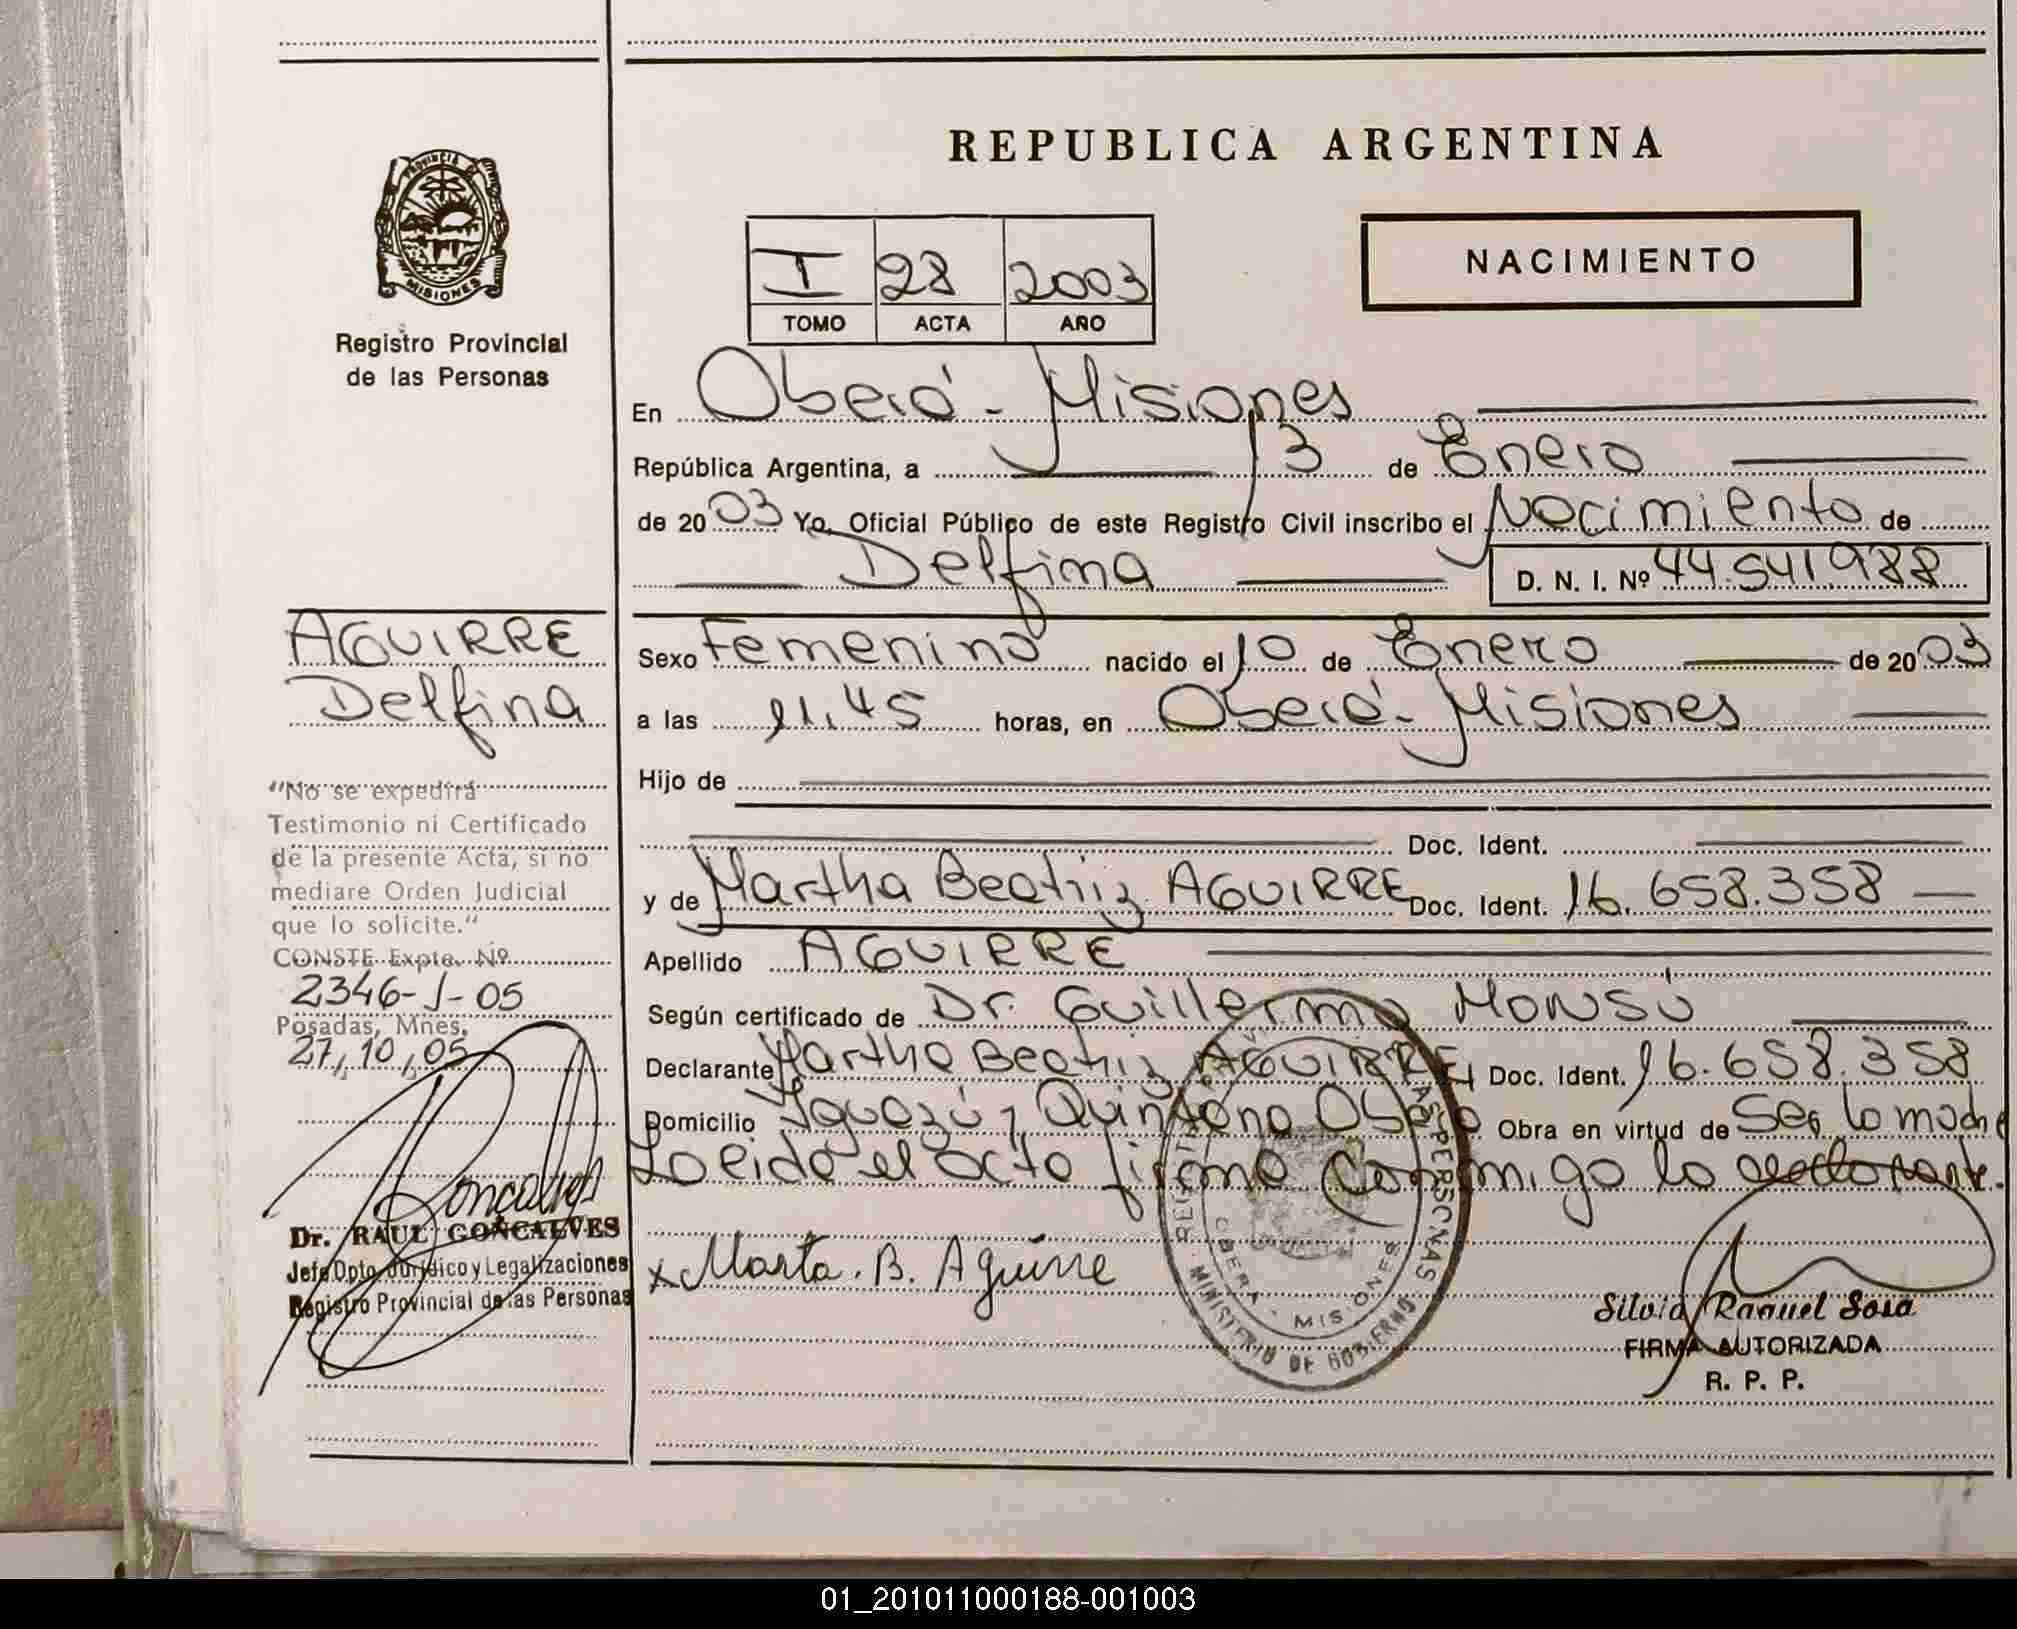 PROVINCIA DE
MISIONES
Registro Provincial
de las Personas
AGUIRRE
Delfina
"No se expedirá
Testimonio ni Certificado
de la presente Acta, si no
mediare Orden Judicial
que lo solicite."
CONSTE Expte. Nº
2346-J-05
Posadas, Mnes,
27,10,05
Dr. RAUL GONCALVES
Jefe Dpto. Jurídico y Legalizaciones
Registro Provincial de las Personas
REPUBLICA ARGENTINA
I 28 2003
TOMO ACTA AÑO
NACIMIENTO
En Oberá - Misiones
República Argentina, a 13 de Enero
de 2003 Yo, Oficial Público de este Registro Civil inscribo el Nacimiento de
Delfina D. N. I. Nº 44.541.988
Sexo Femenino nacido el 10 de Enero de 2003
a las 11.45 horas, en Oberá - Misiones
Hijo de
Doc. Ident.
y de Martha Beatriz AGUIRRE Doc. Ident. 16.658.358
Apellido AGUIRRE
Según certificado de Dr. Guillermo MONSÚ
Declarante Martha Beatriz AGUIRRE Doc. Ident. 16.658.358
Domicilio Iguazú y Quintana Oberá Obra en virtud de Ser la madre
Leída el acta firma conmigo la declarante.
x Marta. B. Aguirre
PERSONAS
MINISTERIO DE GOBIERNO
OBERA - MISIONES
Silvia Raquel Sosa
FIRMA AUTORIZADA
R. P. P.
01_201011000188-001003